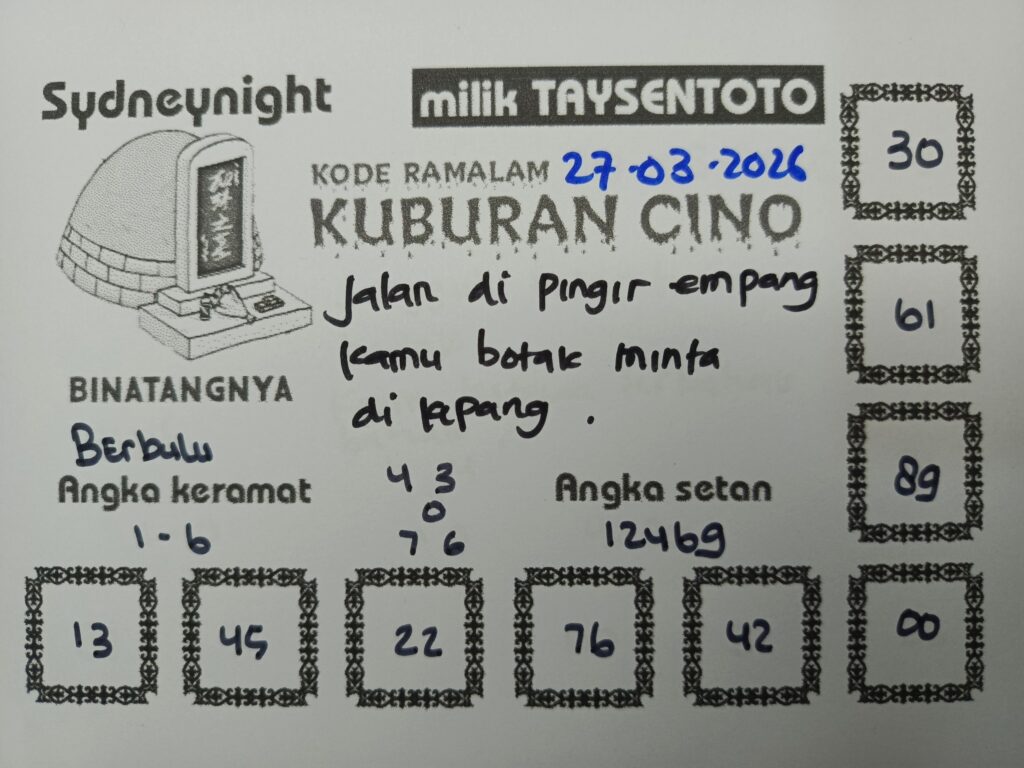 Sydneynight
milik TAYSENTOTO
KODE RAMALAM 27-03-2026
KUBURAN CINO
Jalan di pingir empang
kamu botak minta
di lapang.
BINATANGNYA
Berbulu
Angka keramat
1-6
4 3
0
7 6
Angka setan
12469
30
61
89
00
13 45 22 76 42